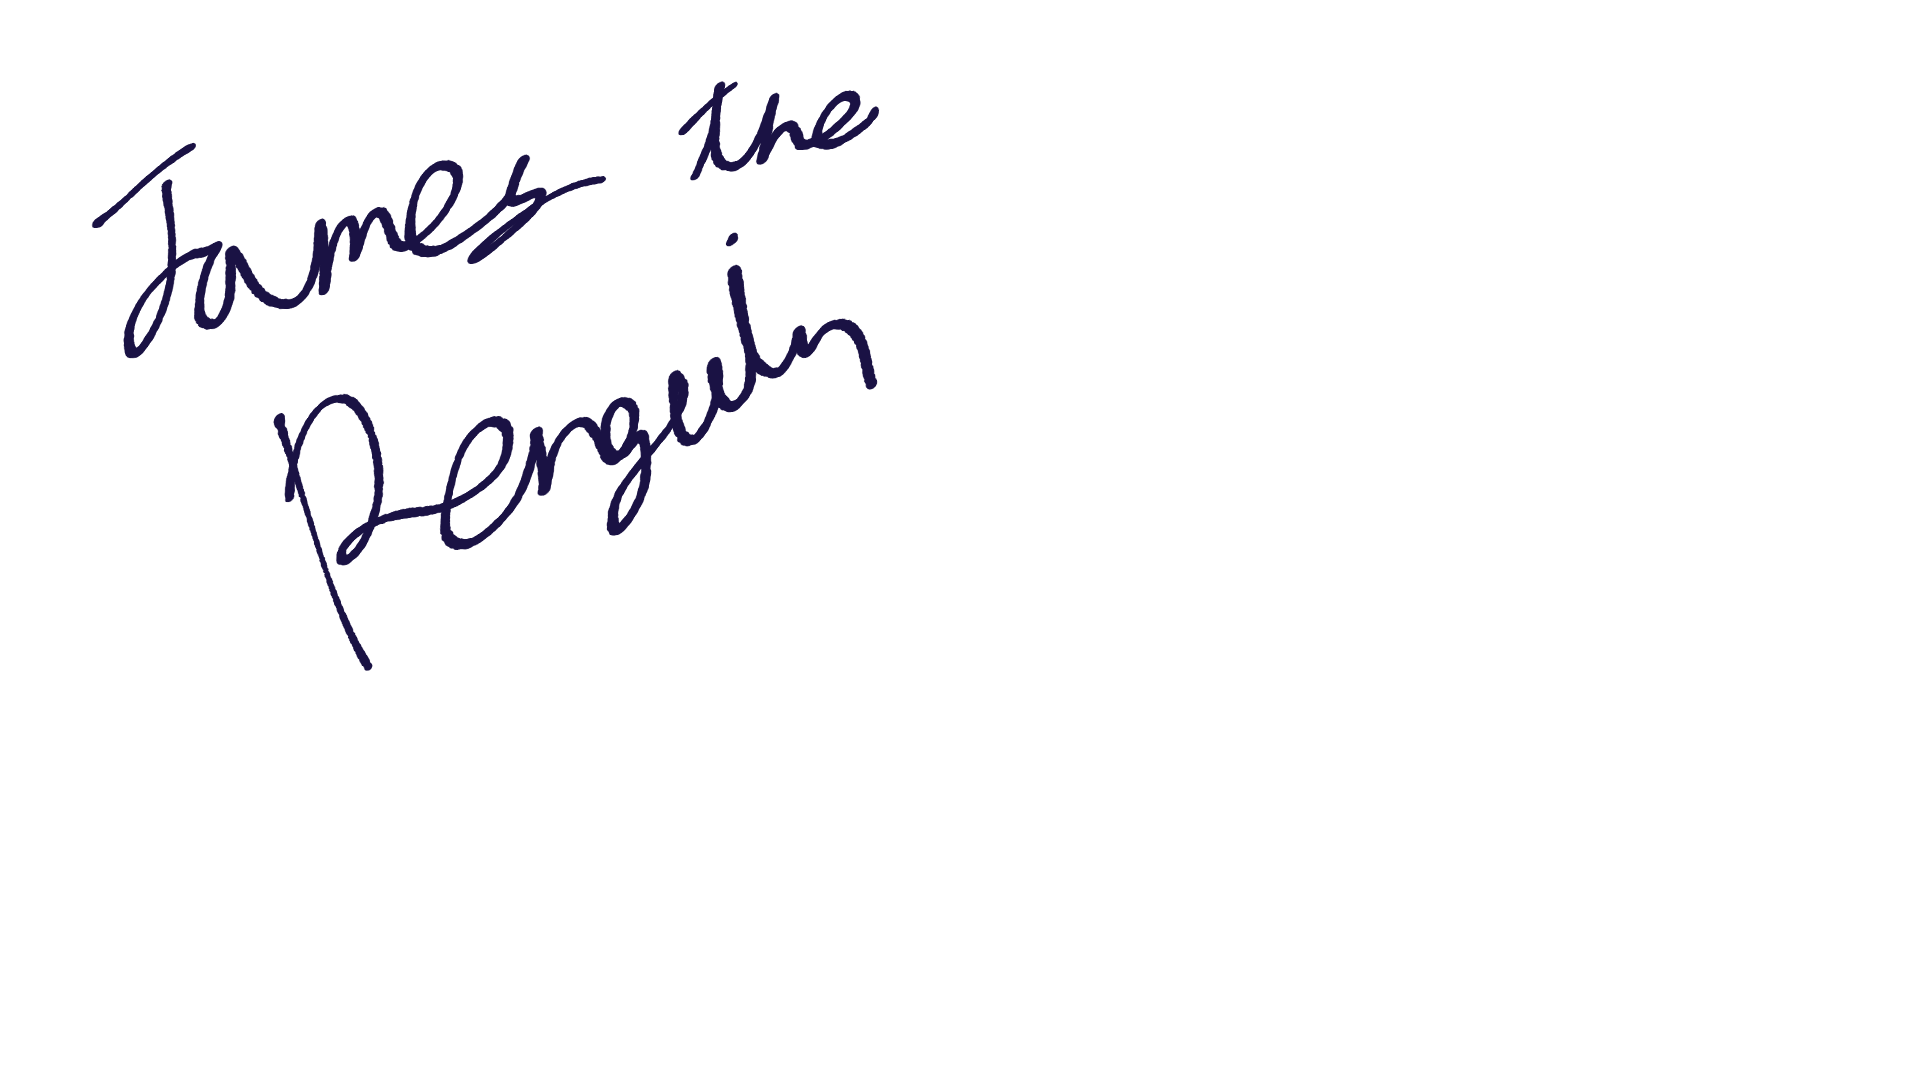 James the
Penguin